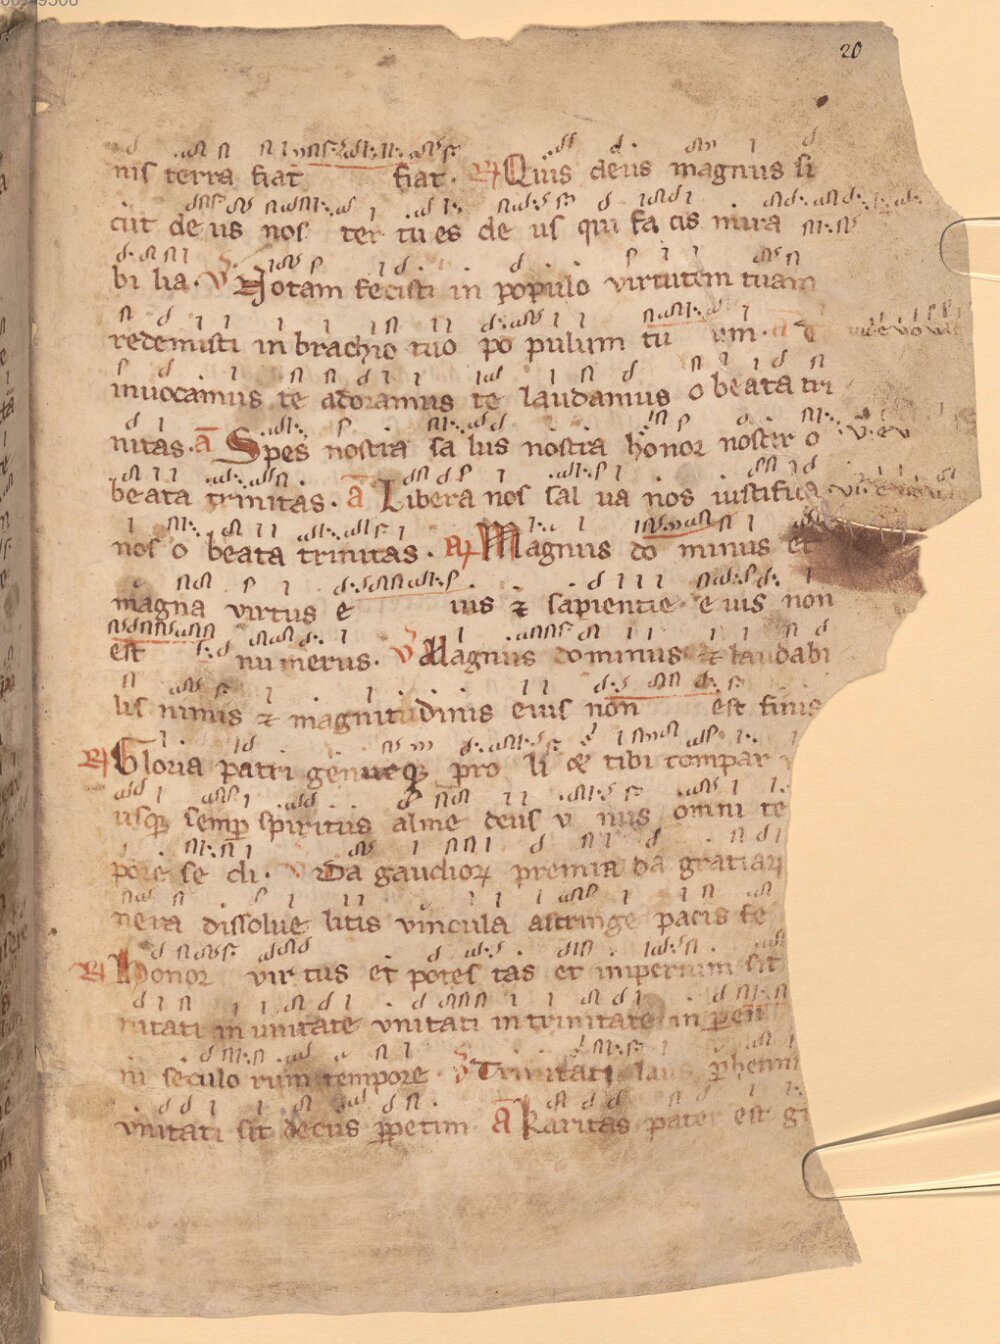 20
nis terra fiat fiat · R Quis deus magnus si
cut de us nos ter tu es de us qui fa cis mira
bi lia · V Notam fecisti in populo virtutem tuam
redemisti in brachio tuo po pulum tu um · a
inuocamus te adoramus te laudamus o beata tri
nitas · a Spes nostra sa lus nostra honor noster o
beata trinitas · a Libera nos sal ua nos iustifica
nos o beata trinitas · R Magnus do minus et
magna virtus e ius ⁊ sapientie e ius non
est numerus · V Magnus dominus ⁊ laudabi
lis nimis ⁊ magnitudinis eius non est finis
R Gloria patri geniteqꝫ pro li & tibi compar
usqꝫ semꝑ spiritus alme deus v nus omni te
pore se cli · V Da gaudioꝝ premia da gratiaꝝ
nera dissolue litis vincula astringe pacis fe
R Honor virtus et potes tas et imperium sit
nitati in unitate vnitati in trinitate in ꝑen
ni seculo rum tempore · V Trinitati laus ꝑhenni
vnitati sit decus ꝑpetim a Karitas pater est gr